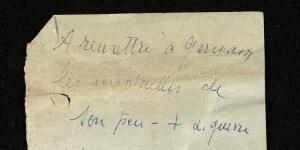 A remettre à Germain
les médailles de
son père - + de guerre